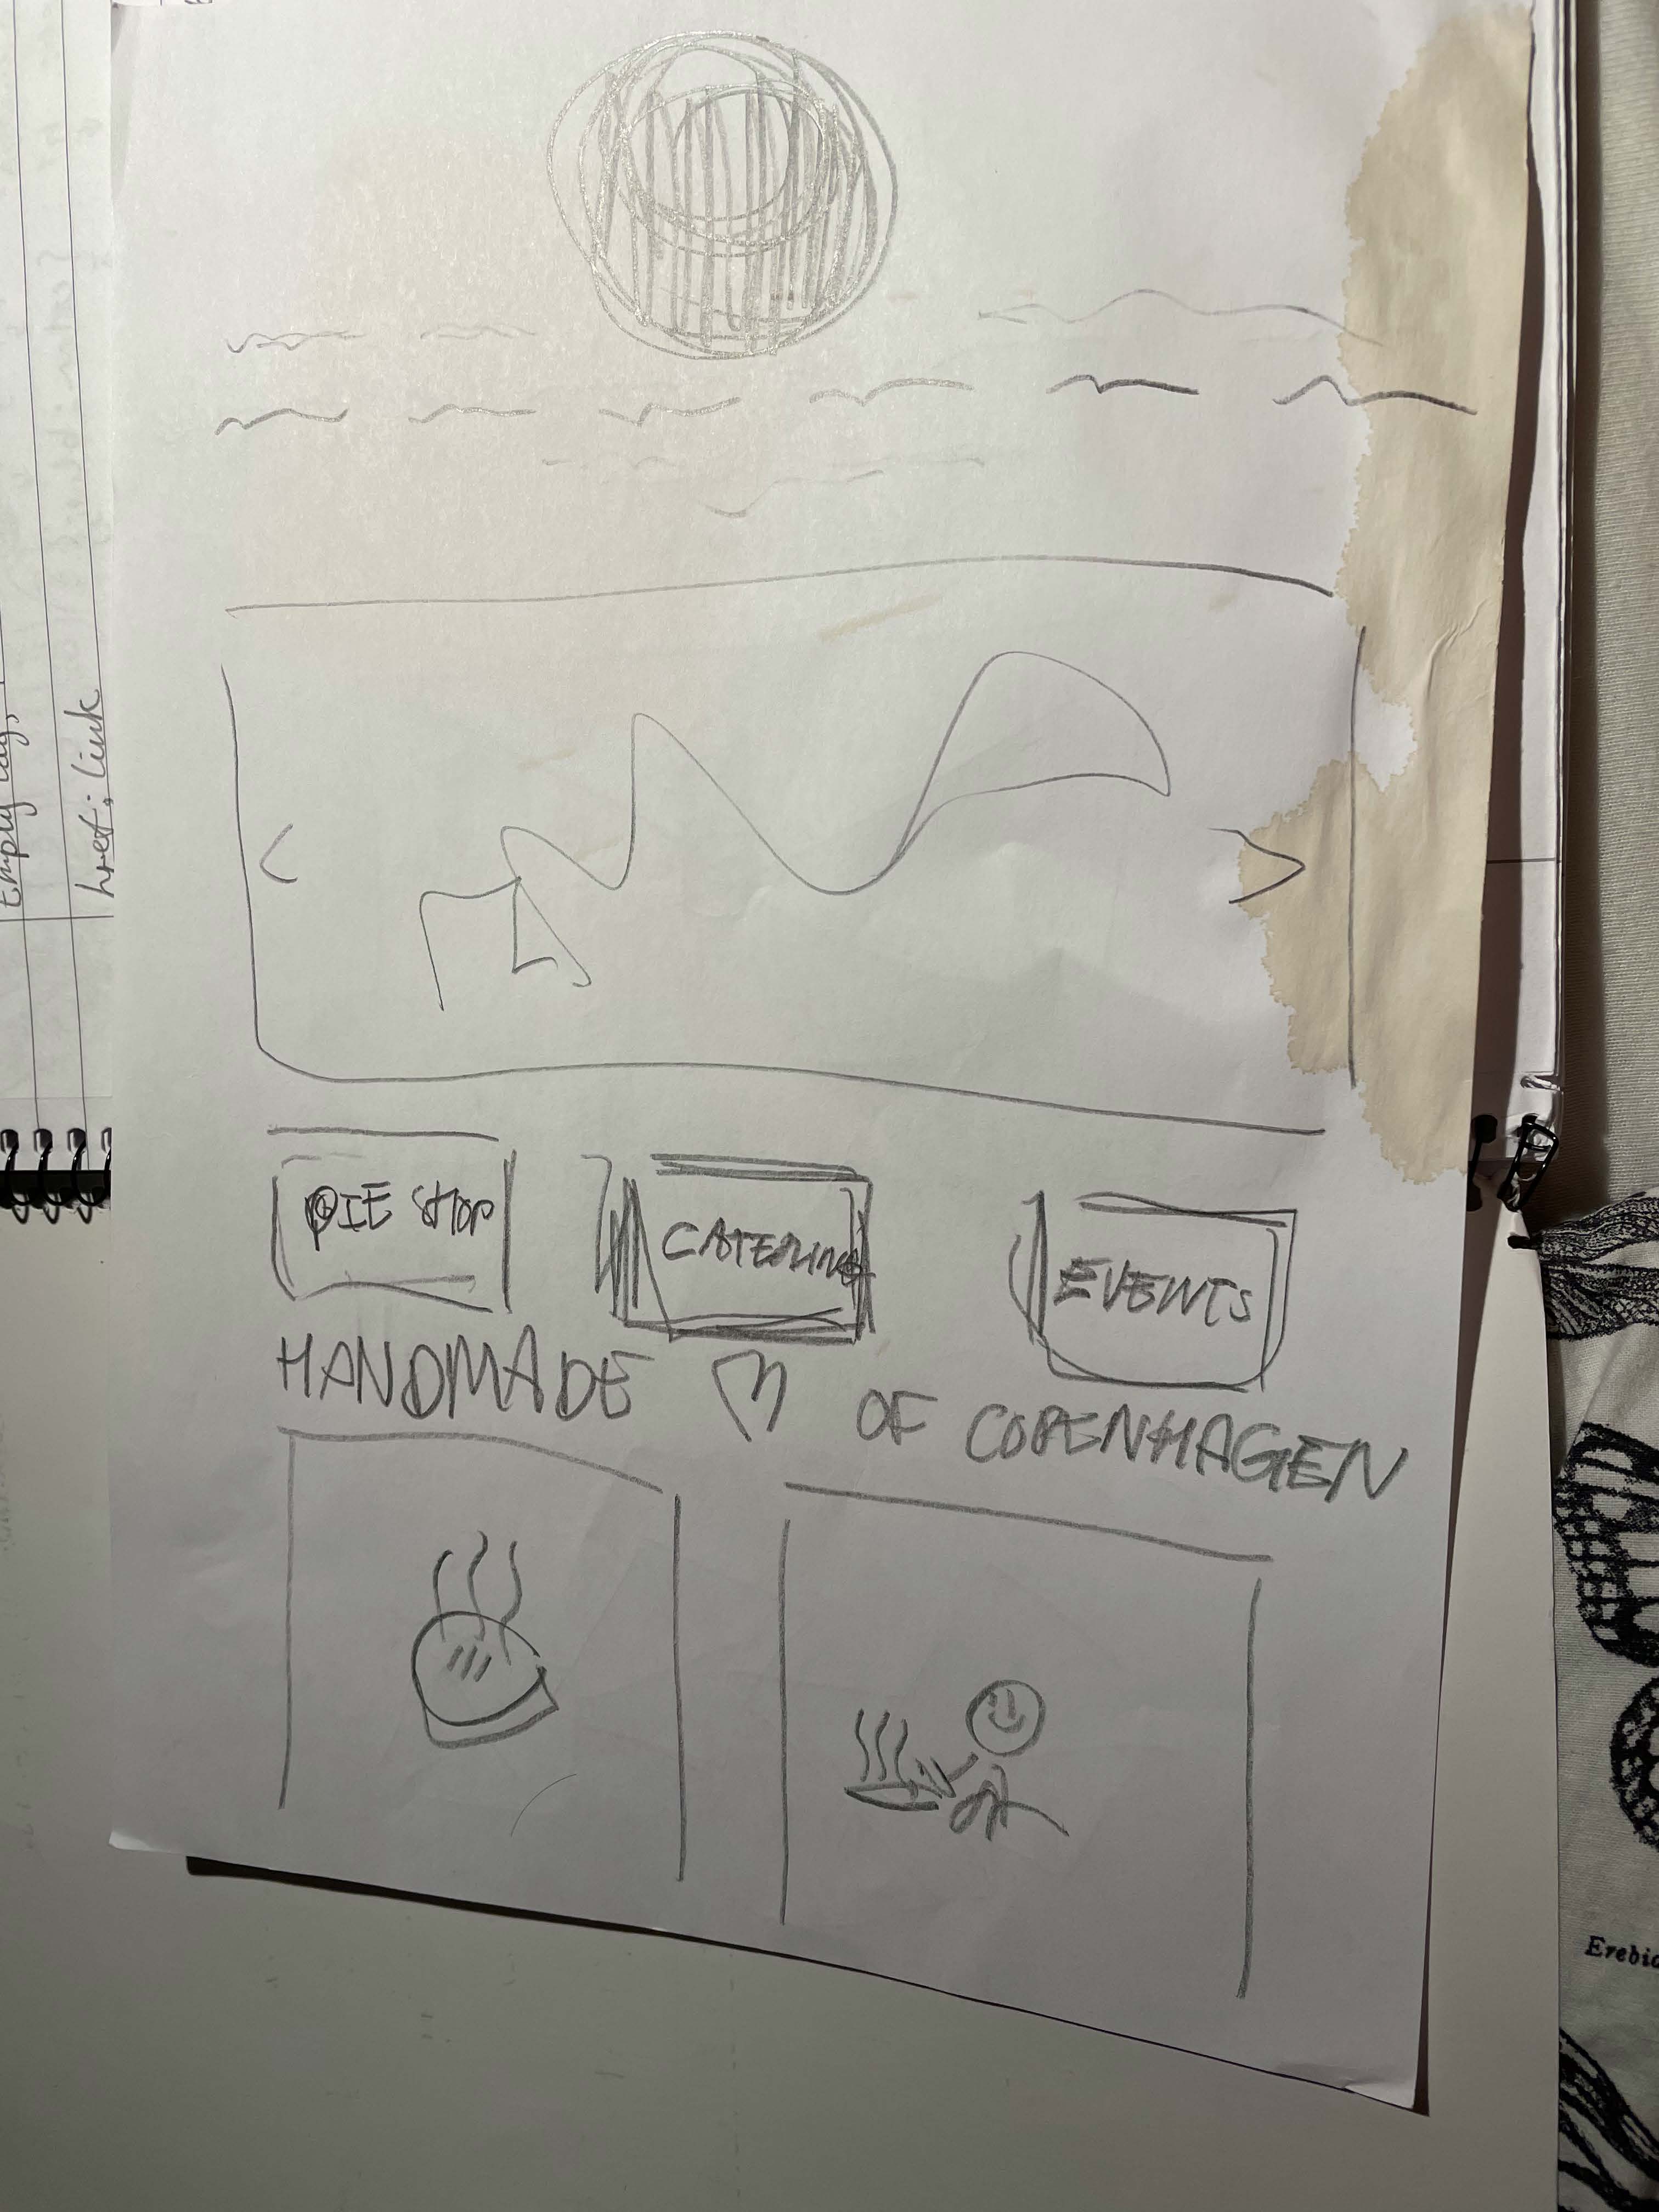 href: link
PIE SHOP
CATERING
EVENTS
HANDMADE ♡ OF COPENHAGEN
Erebia